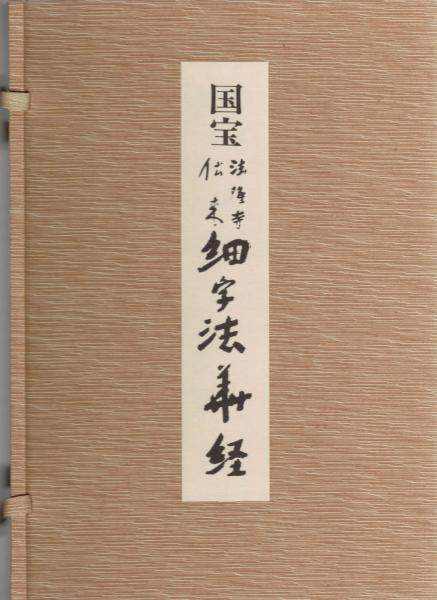 国宝
法隆寺
伝来
細字法華経